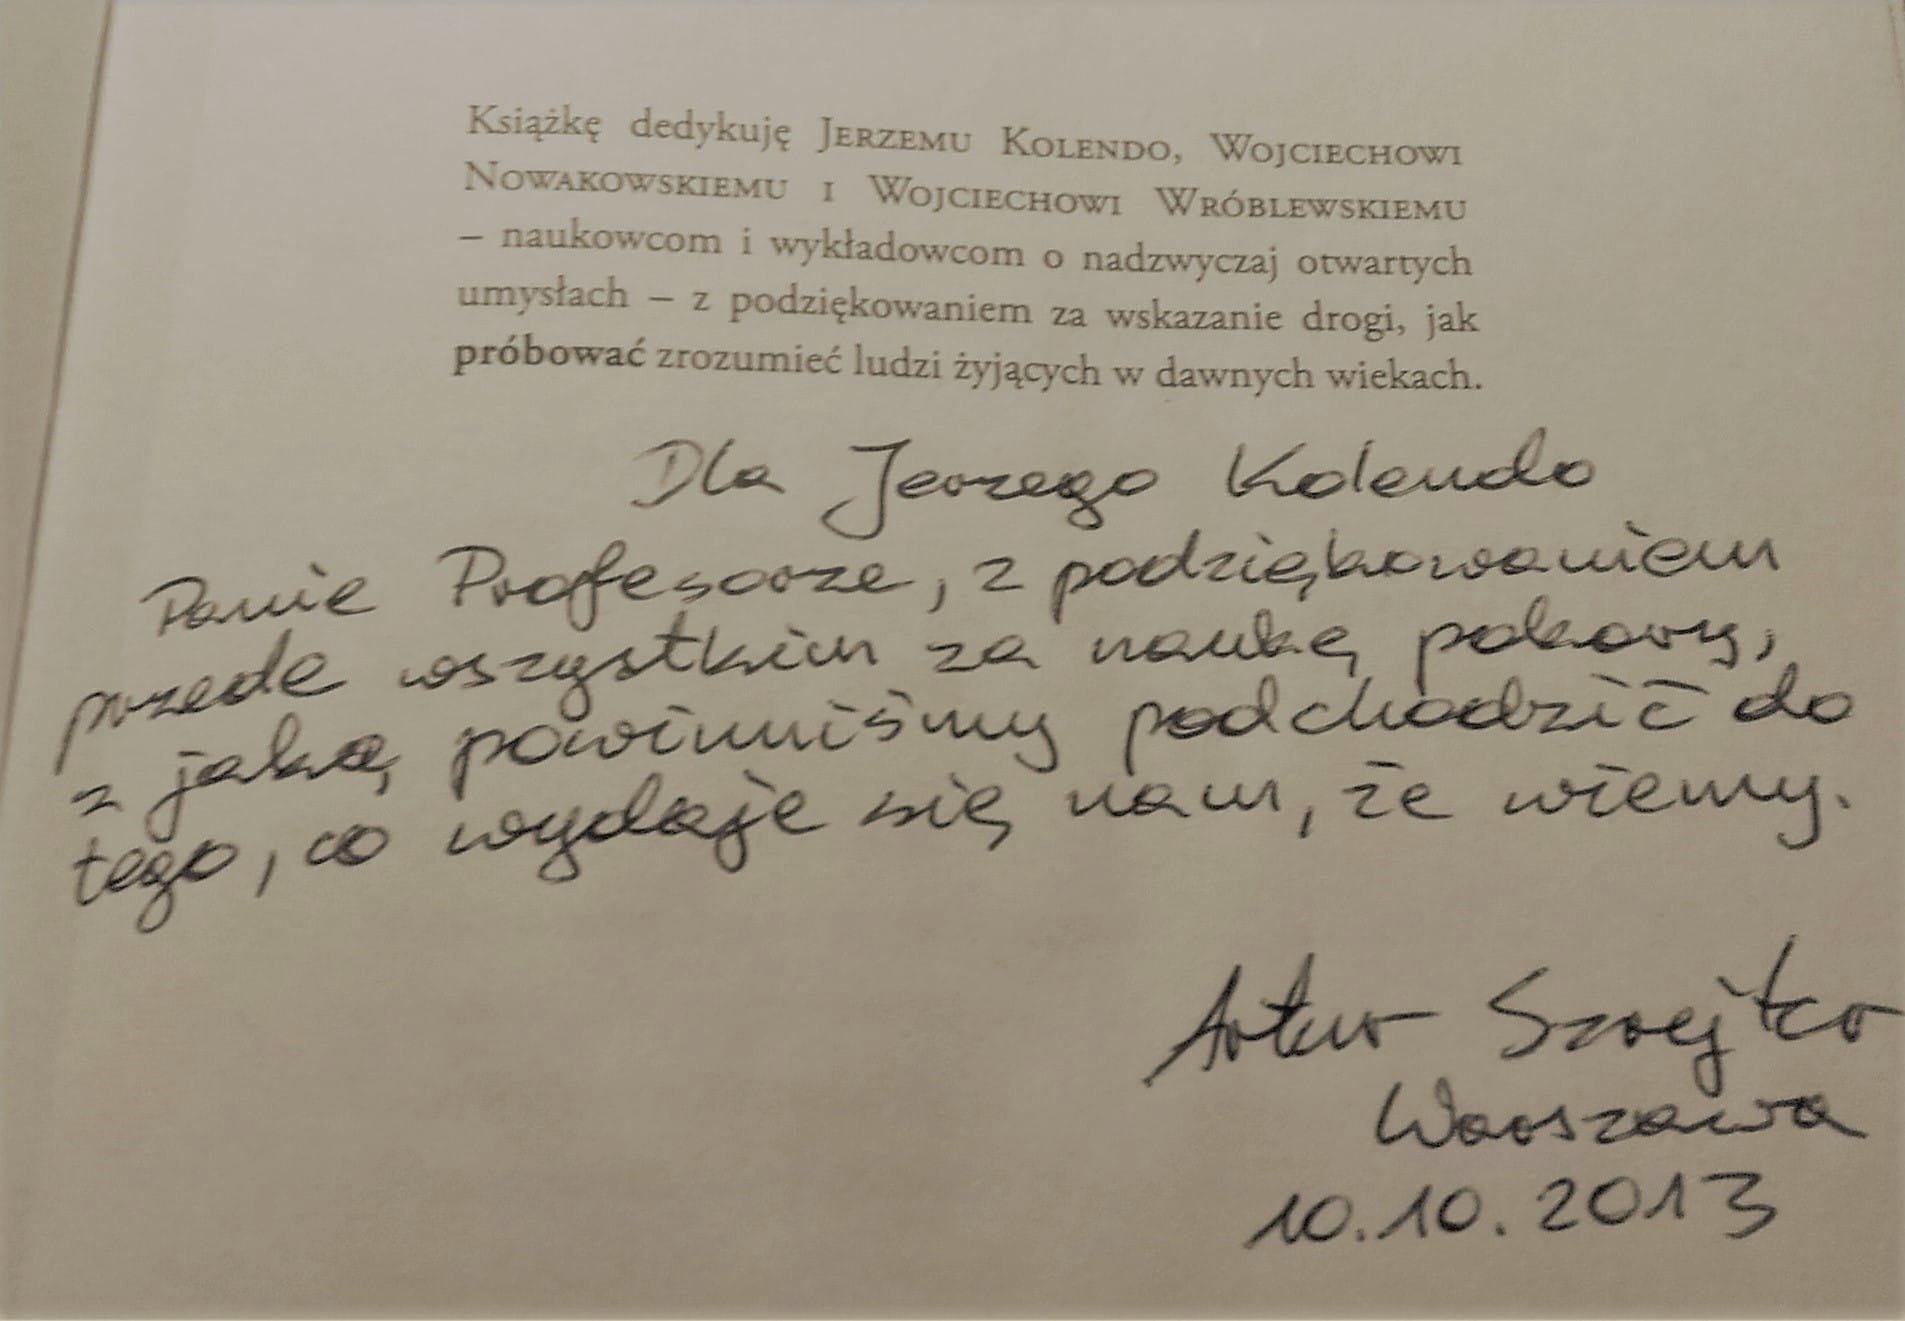 Książkę dedykuję Jerzemu Kolendo, Wojciechowi
Nowakowskiemu i Wojciechowi Wróblewskiemu
– naukowcom i wykładowcom o nadzwyczaj otwartych
umysłach – z podziękowaniem za wskazanie drogi, jak
próbować zrozumieć ludzi żyjących w dawnych wiekach.
Dla Jerzego Kolendo
Panie Profesorze, z podziękowaniem
przede wszystkim za naukę pokory,
z jaką powinniśmy podchodzić do
tego, co wydaje się nam, że wiemy.
Artur
Warszawa
10.10.2013